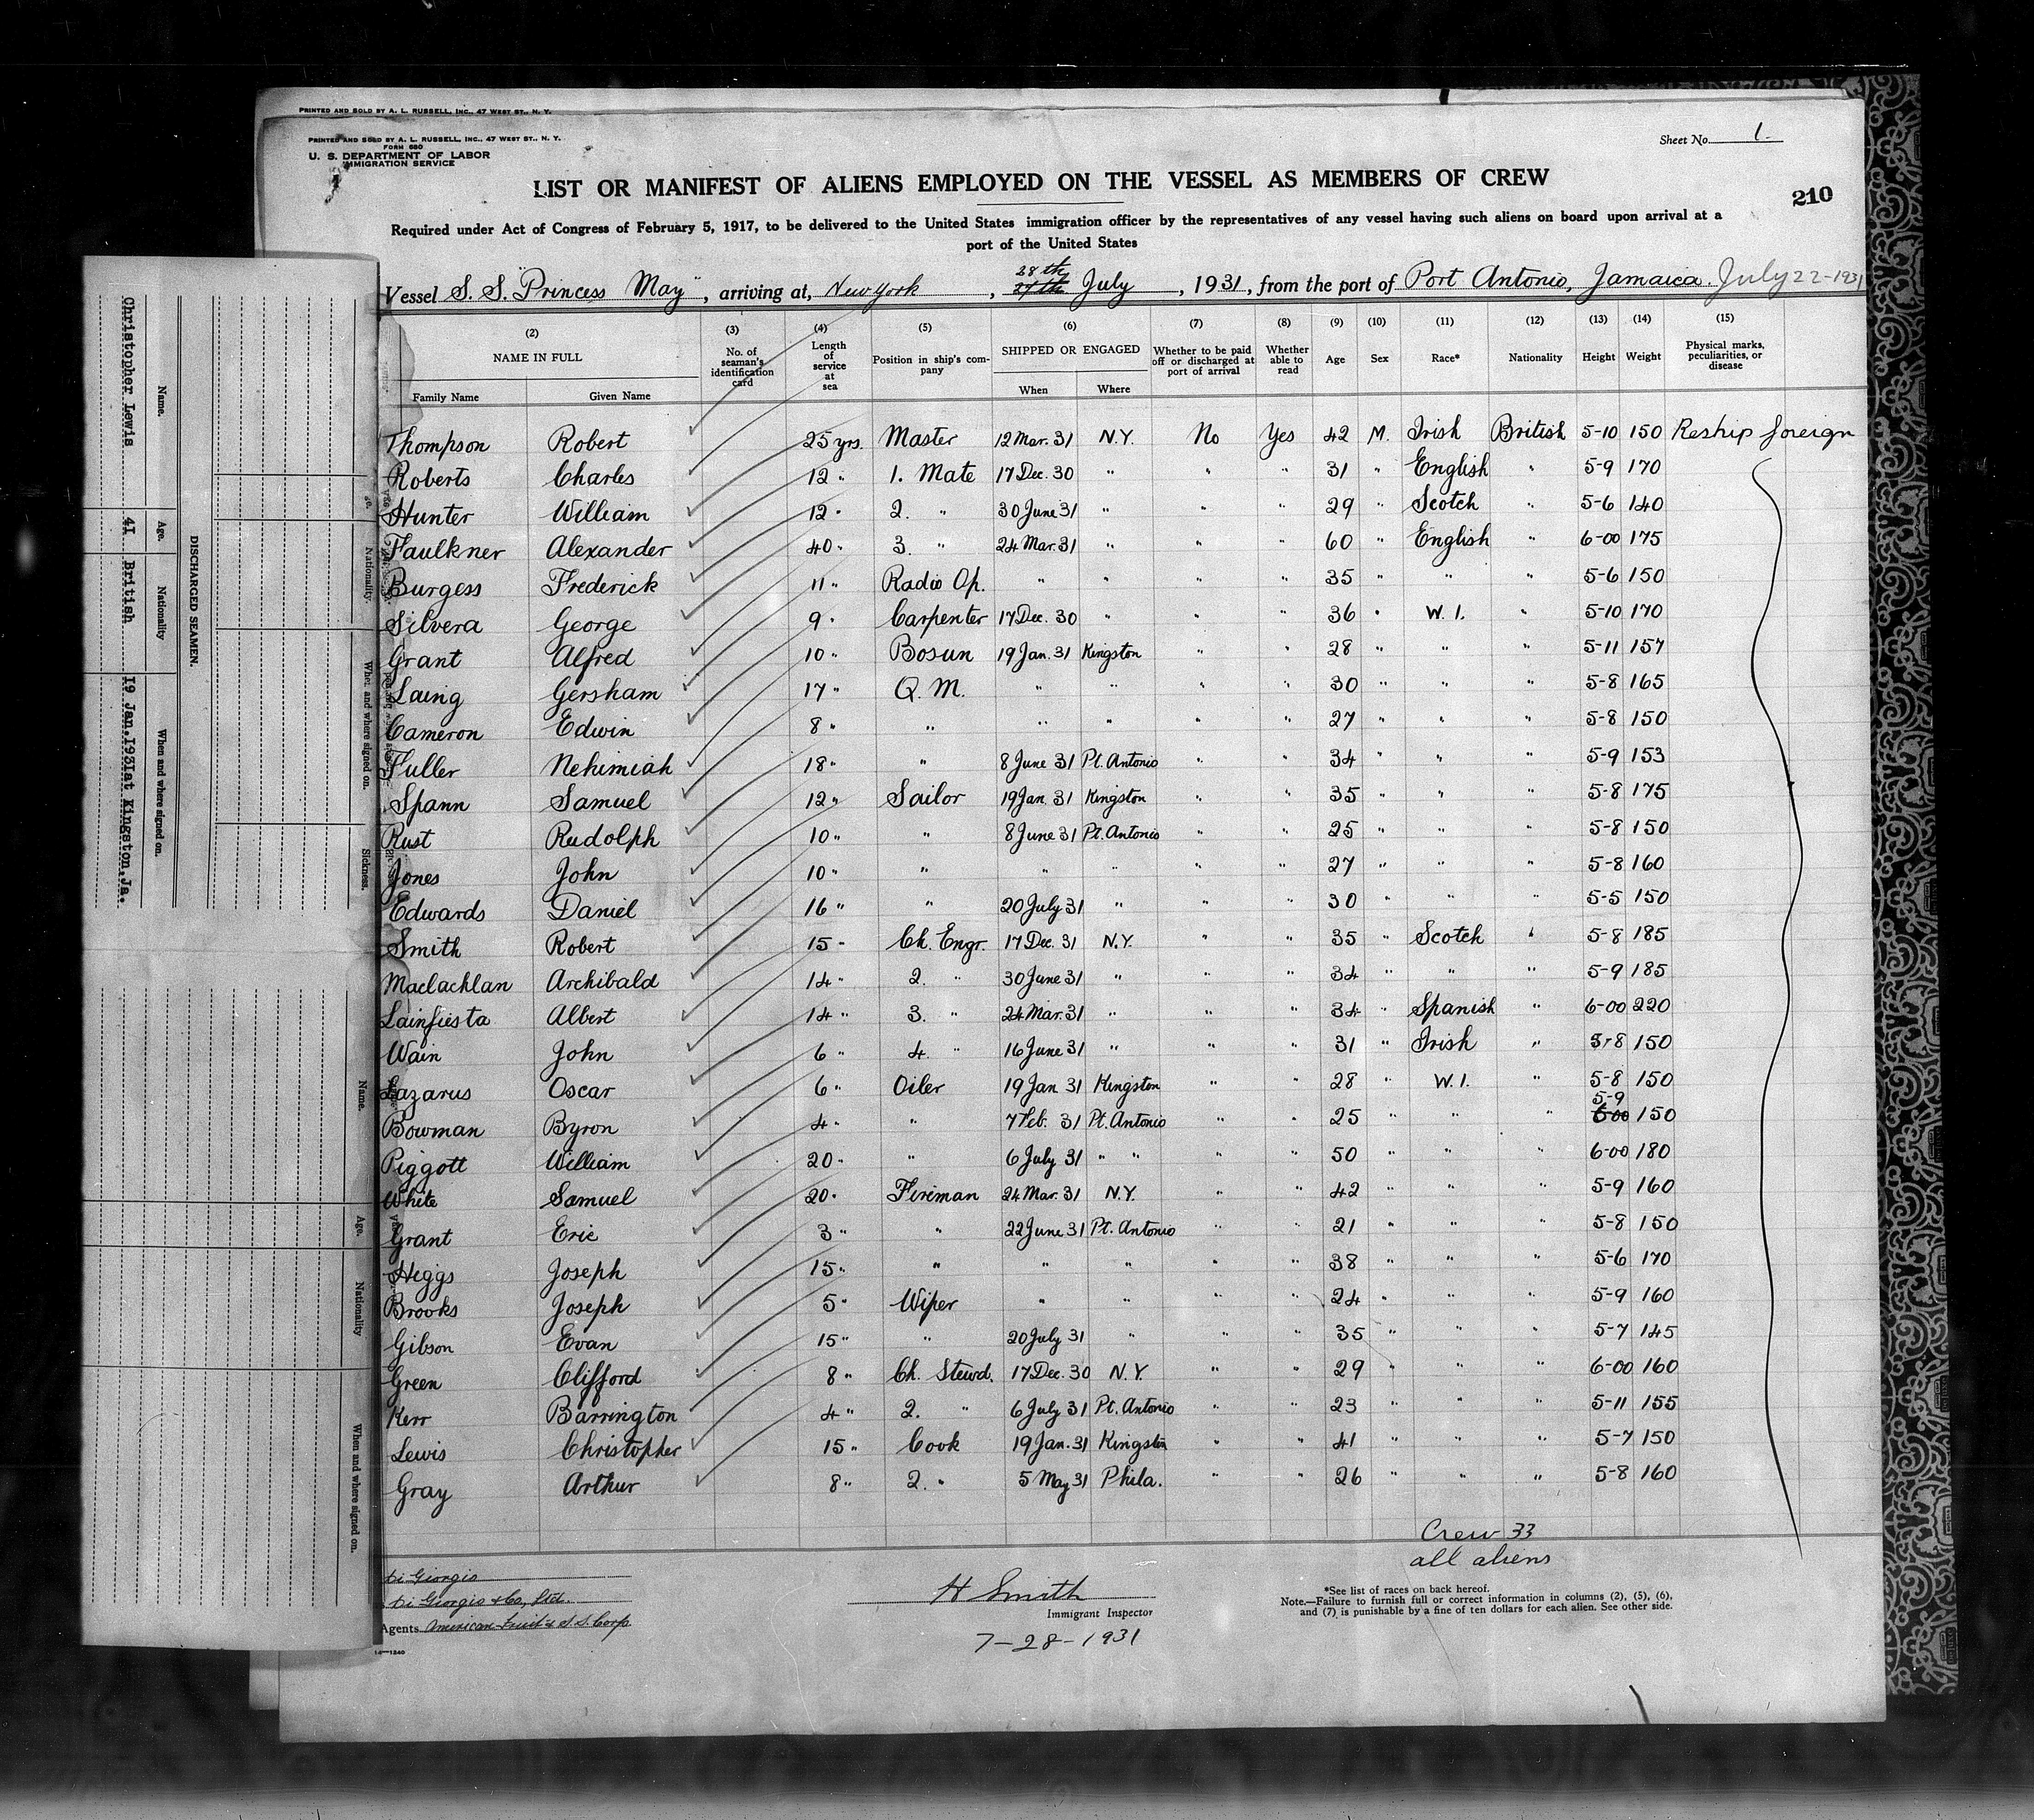 PRINTED AND SOLD BY A. L. RUSSELL, INC., 47 WEST ST., N. Y.
PRINTED AND SOLD BY A. L. RUSSELL, INC., 47 WEST ST., N. Y.
FORM 680
U. S. DEPARTMENT OF LABOR
IMMIGRATION SERVICE
Sheet No. 1
LIST OR MANIFEST OF ALIENS EMPLOYED ON THE VESSEL AS MEMBERS OF CREW
210
Required under Act of Congress of February 5, 1917, to be delivered to the United States immigration officer by the representatives of any vessel having such aliens on board upon arrival at a
port of the United States
28th
Vessel S. S. "Princess May", arriving at, New York, 27th July, 1931, from the port of Port Antonio, Jamaica. July 22-1931
(2) (3) (4) (5) (6) (7) (8) (9) (10) (11) (12) (13) (14) (15)
NAME IN FULL No. of seaman's identification card Length of service at sea Position in ship's company SHIPPED OR ENGAGED Whether to be paid off or discharged at port of arrival Whether able to read Age Sex Race* Nationality Height Weight Physical marks, peculiarities, or disease
Family Name Given Name When Where
Thompson Robert ✓ 25 yrs. Master 12 Mar. 31 N.Y. No Yes 42 M. Irish British 5-10 150 Reship foreign
Roberts Charles ✓ 12 " 1. Mate 17 Dec. 30 " " " 31 " English " 5-9 170
Hunter William ✓ 12 " 2. " 30 June 31 " " " 29 " Scotch " 5-6 140
Faulkner Alexander ✓ 40 " 3. " 24 Mar. 31 " " " 60 " English " 6-00 175
Burgess Frederick ✓ 11 " Radio Op. " " " " 35 " " " 5-6 150
Silvera George ✓ 9 " Carpenter 17 Dec. 30 " " " 36 " W. I. " 5-10 170
Grant Alfred ✓ 10 " Bosun 19 Jan. 31 Kingston " " 28 " " " 5-11 157
Laing Gersham ✓ 17 " Q. M. " " " " 30 " " " 5-8 165
Cameron Edwin ✓ 8 " " " " " " 27 " " " 5-8 150
Fuller Nehimiah ✓ 18 " " 8 June 31 Pt. Antonio " " 34 " " " 5-9 153
Spann Samuel ✓ 12 " Sailor 19 Jan. 31 Kingston " " 35 " " " 5-8 175
Rust Rudolph ✓ 10 " " 8 June 31 Pt. Antonio " " 25 " " " 5-8 150
Jones John ✓ 10 " " " " " " 27 " " " 5-8 160
Edwards Daniel ✓ 16 " " 20 July 31 " " " 30 " " " 5-5 150
Smith Robert ✓ 15 " Ch. Engr. 17 Dec. 31 N.Y. " " 35 " Scotch " 5-8 185
Maclachlan Archibald ✓ 14 " 2. " 30 June 31 " " " 34 " " " 5-9 185
Lainfiesta Albert ✓ 14 " 3. " 24 Mar. 31 " " " 34 " Spanish " 6-00 220
Wain John ✓ 6 " 4. " 16 June 31 " " " 31 " Irish " 5-8 150
Lazarus Oscar ✓ 6 " Oiler 19 Jan 31 Kingston " " 28 " W. I. " 5-8 150
5-9
Bowman Byron ✓ 4 " " 7 Feb. 31 Pt. Antonio " " 25 " " " 6-00 150
Piggott William ✓ 20 " " 6 July 31 " " " " 50 " " " 6-00 180
White Samuel ✓ 20 " Fireman 24 Mar. 31 N.Y. " " 42 " " " 5-9 160
Grant Eric ✓ 3 " " 22 June 31 Pt. Antonio " " 21 " " " 5-8 150
Higgs Joseph ✓ 15 " " " " " " 38 " " " 5-6 170
Brooks Joseph ✓ 5 " Wiper " " " " 24 " " " 5-9 160
Gibson Evan ✓ 15 " " 20 July 31 " " " 35 " " " 5-7 145
Green Clifford ✓ 8 " Ch. Stewd. 17 Dec. 30 N.Y. " " 29 " " " 6-00 160
Kerr Barrington ✓ 4 " 2. " 6 July 31 Pt. Antonio " " 23 " " " 5-11 155
Lewis Christopher ✓ 15 " Cook 19 Jan. 31 Kingston " " 41 " " " 5-7 150
Gray Arthur ✓ 8 " 2. " 5 May 31 Phila. " " 26 " " " 5-8 160
Crew 33
all aliens
Di Giorgio
Di Giorgio & Co., Ltd.
Agents American Fruit & S. S. Corp.
14—1240
H Smith
Immigrant Inspector
7-28-1931
*See list of races on back hereof.
Note.—Failure to furnish full or correct information in columns (2), (5), (6),
and (7) is punishable by a fine of ten dollars for each alien. See other side.
DISCHARGED SEAMEN.
Name. Age. Nationality When and where signed on.
Christopher Lewis 41 British 19 Jan.1931at Kingston,Ja.
Nationality. When and where signed on. Sickness.
Name. Age. Nationality When and where signed on.